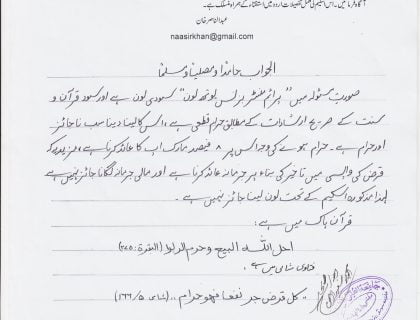 آگاہ فرمائیں۔ اس اسکیم کی مکمل تفصیلات اردو میں استفتاء کے ہمراہ منسلک ہے۔
عبدالناصر خان
naasirkhan@gmail.com
الجواب حامداً ومصلیاً ومسلماً
صورت مسئولہ میں "پرائم منسٹر بزنس یوتھ لون" سودی لون ہے اور سود قرآن و
سنت کے صریح ارشادات کے مطابق حرام قطعی ہے، اس کا لینا دینا سب ناجائز
اور حرام ہے۔ حرام ہونے کی وجہ اس پر ۸ فیصد مارک اپ کا عائد کرنا ہے، مزید یہ کہ
قرض کی واپسی میں تاخیر کی بناء پر جرمانہ عائد کرنا ہے اور مالی جرمانہ لگانا جائز نہیں ہے
لہذا مذکورہ اسکیم کے تحت لون لینا جائز نہیں ہے۔
قرآن پاک میں ہے :
احل اللہ البیع وحرم الربوا (البقرة : ۲۷۵)
فتاوی شامی میں ہے
"کل قرض جر نفعا فھو حرام" (شامی ۵/۱۶۶)